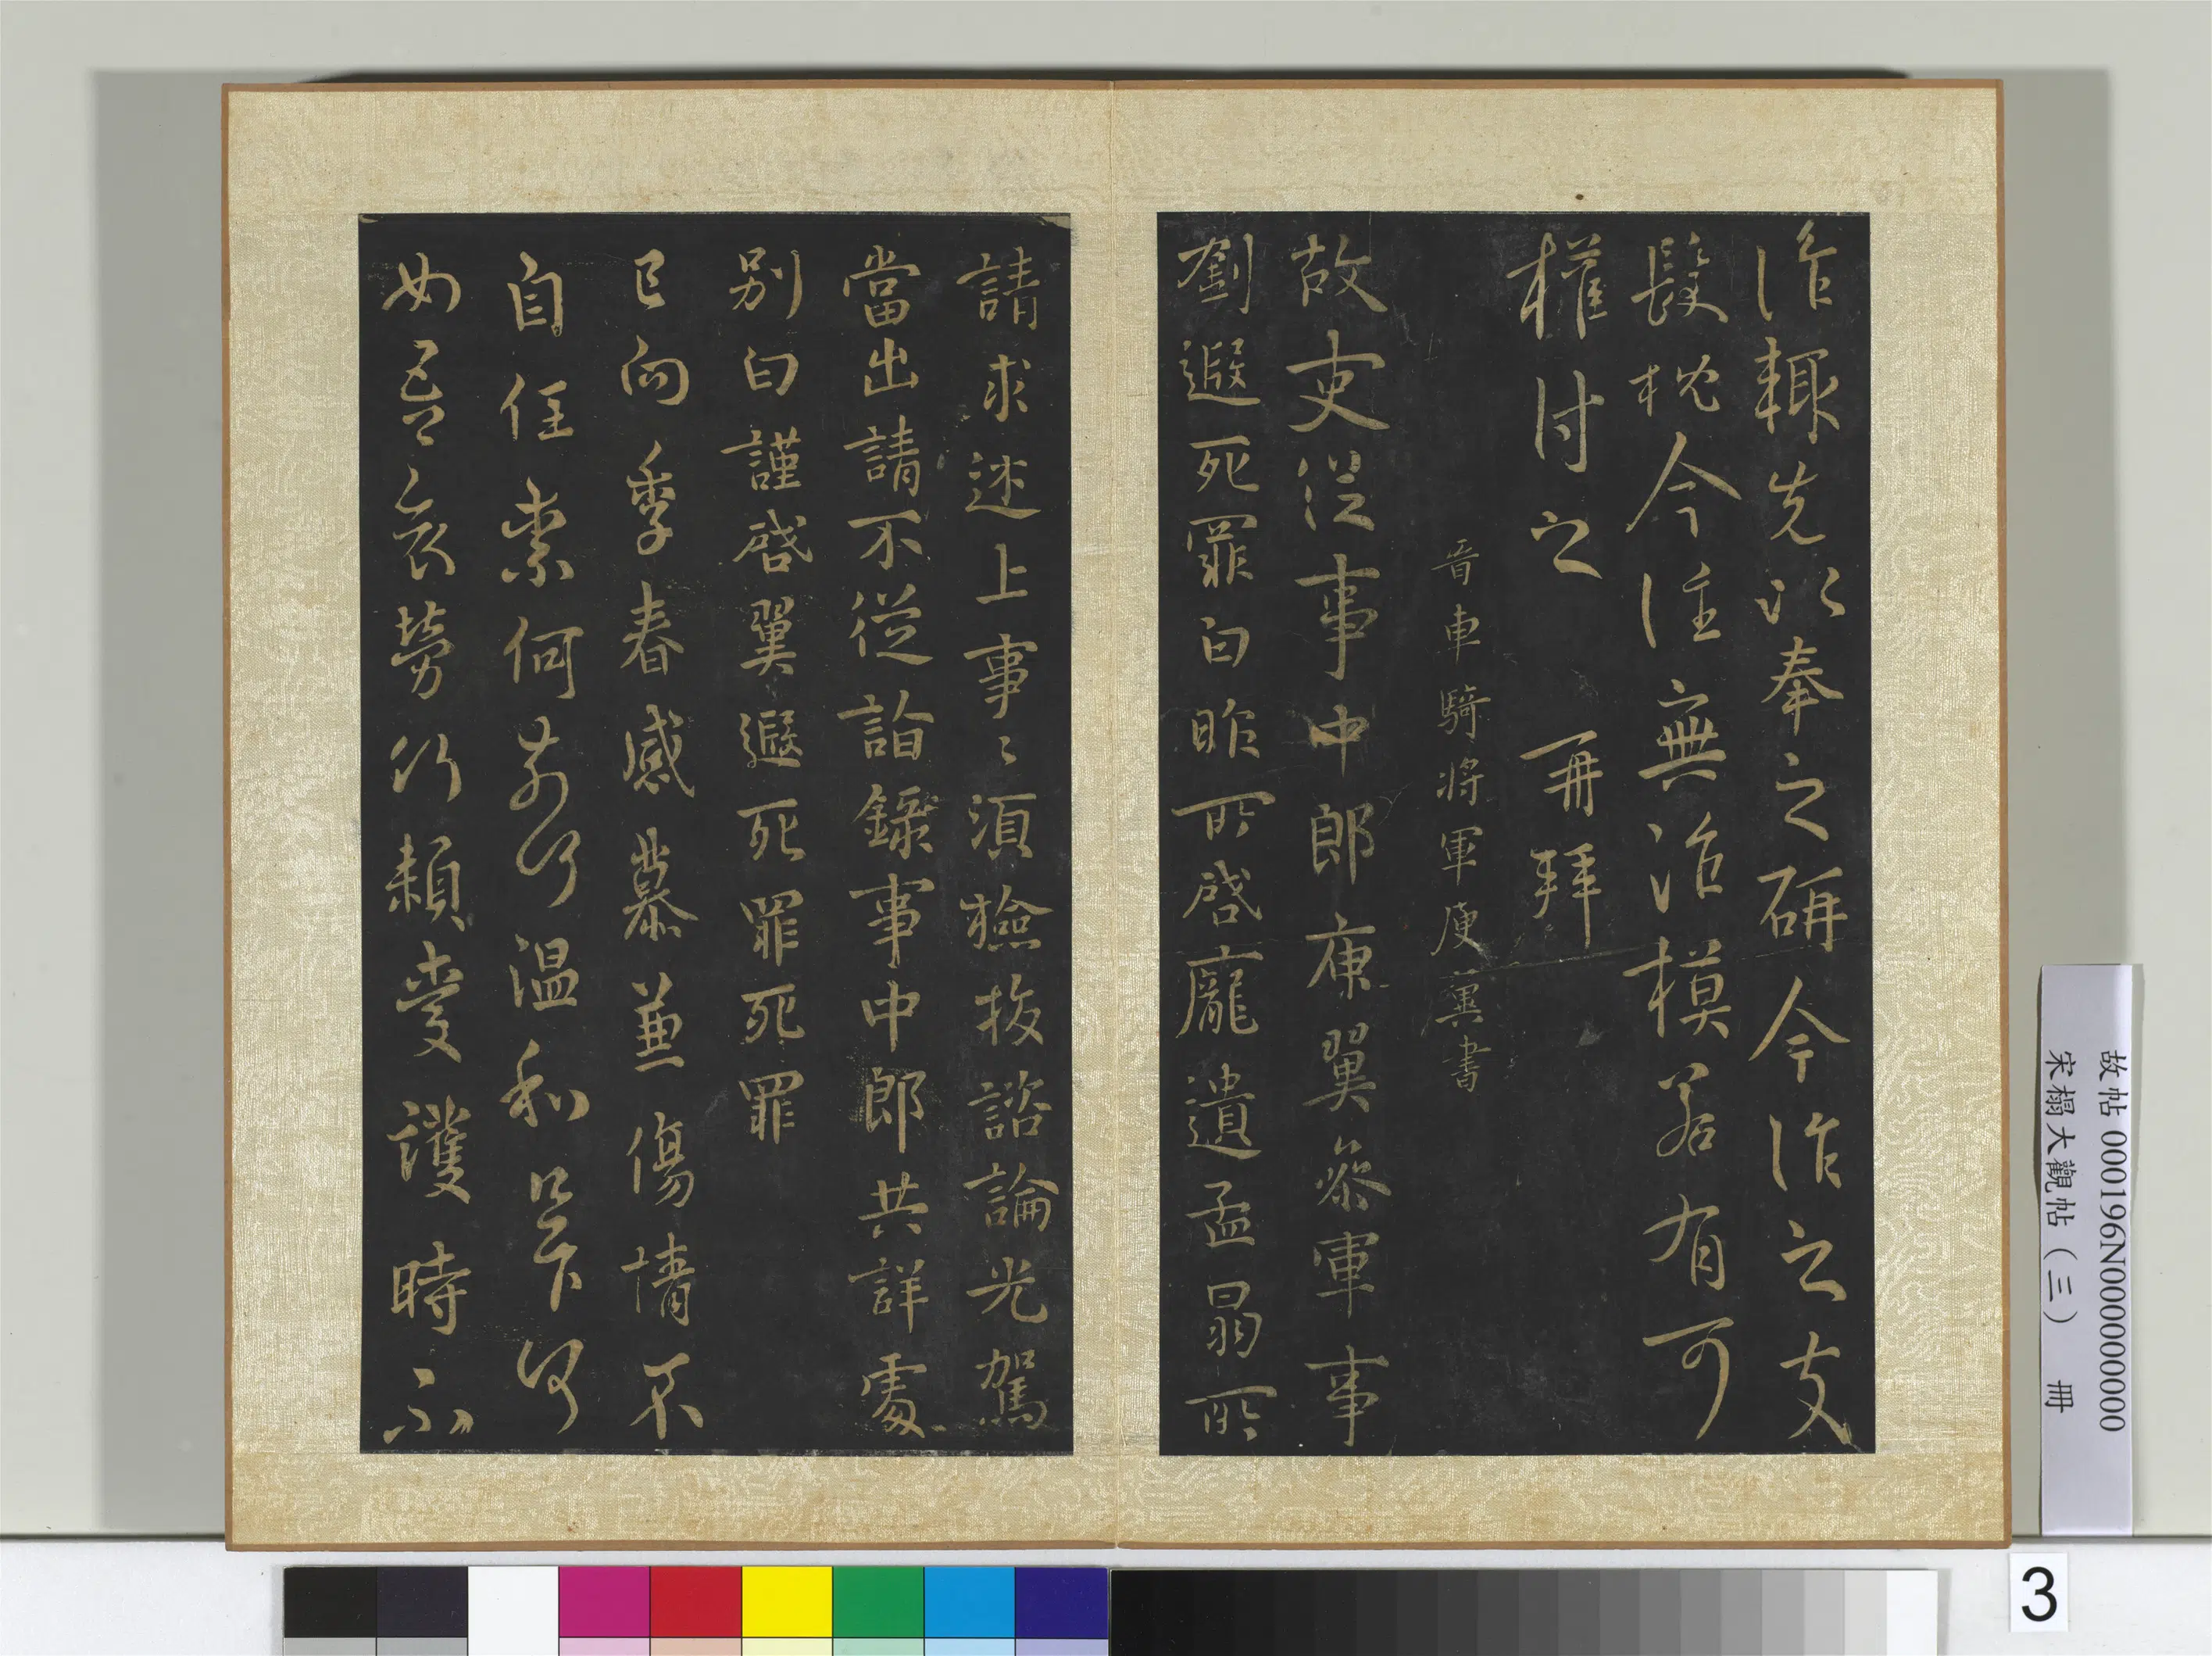 作輒先以奉之研今作之支
髮枕今注無作模若有可
權付之　再拜
晉車騎將軍庾翼書
故吏從事中郎庾翼參軍事
劉遐死罪白昨所啓龐遺孟曷所
請求述上事〻須檢校諮論光駕
當出請不從詣錄事中郎共詳處
別白謹啓翼遐死罪死罪
已向季春感慕兼傷情不
自任奈何奈何溫和足下何
如吾哀勞何賴愛護時不
故帖 000196N000000000
宋榻大觀帖（三）　冊
3